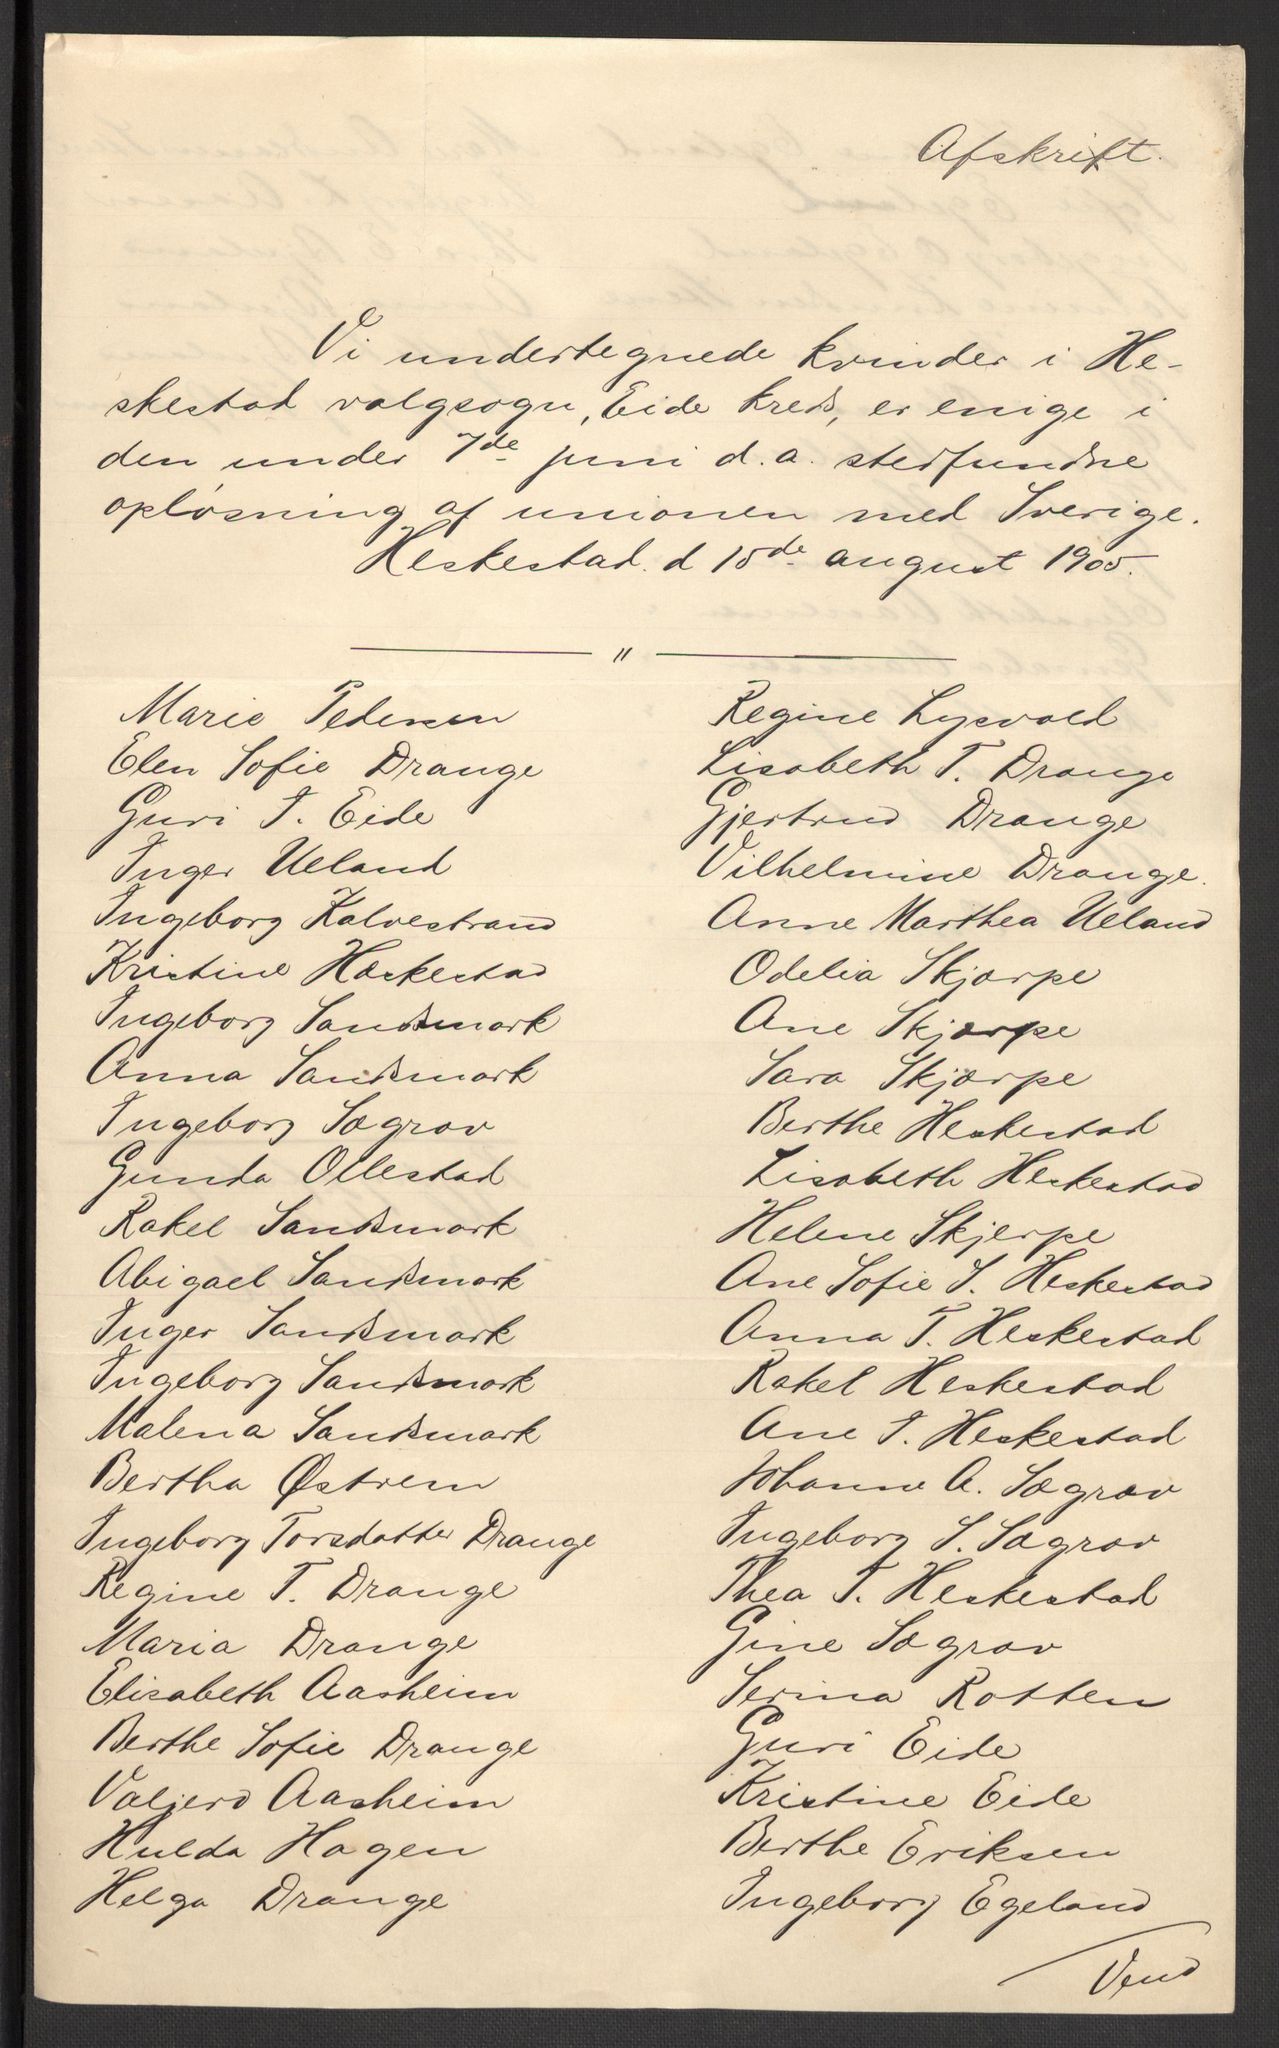 Afskrift.
Vi undertegnede kvinder i He-
skestad valgsogn, Eide kreds, er enige i
den under 7de juni d. a. stedfundne
opløsning af unionen med Sverige.
Heskestad. d 15de august 1905.
"
Marie Pedersen
Elen Sofie Drange
Guri T. Eide
Inger Ueland
Ingeborg Kalvestrand
Kristine Hæskestad
Ingeborg Sandsmark
Anna Sandsmark
Ingeborg Sægrov
Gunda Ollestad
Rakel Sandsmark
Abigael Sandsmark
Inger Sandsmark
Ingeborg Sandsmark
Malena Sandsmark
Bertha Østrem
Ingeborg Torsdatter Drange
Regine T. Drange
Maria Drange
Elisabeth Aasheim
Berthe Sofie Drange
Valjerd Aasheim
Hulda Hagen
Helga Drange
Regine Lysvold
Lisabeth T. Drange
Gjertrud Drange
Vilhelmine Drange.
Anne Marthea Ueland
Odelia Skjærpe
Ane Skjærpe
Sara Skjærpe
Berthe Heskestad
Lisabeth Heskestad
Helene Skjerpe
Ane Sofie S. Heskestad
Anna T. Heskestad
Rakel Heskestad
Ane T. Heskestad
Johanne A. Sægrov
Ingeborg S. Sægrov
Thea T. Heskestad
Gine Sægrov
Serina Rotten
Guri Eide
Kristine Eide
Berthe Eriksen
Ingeborg Egeland
Vend